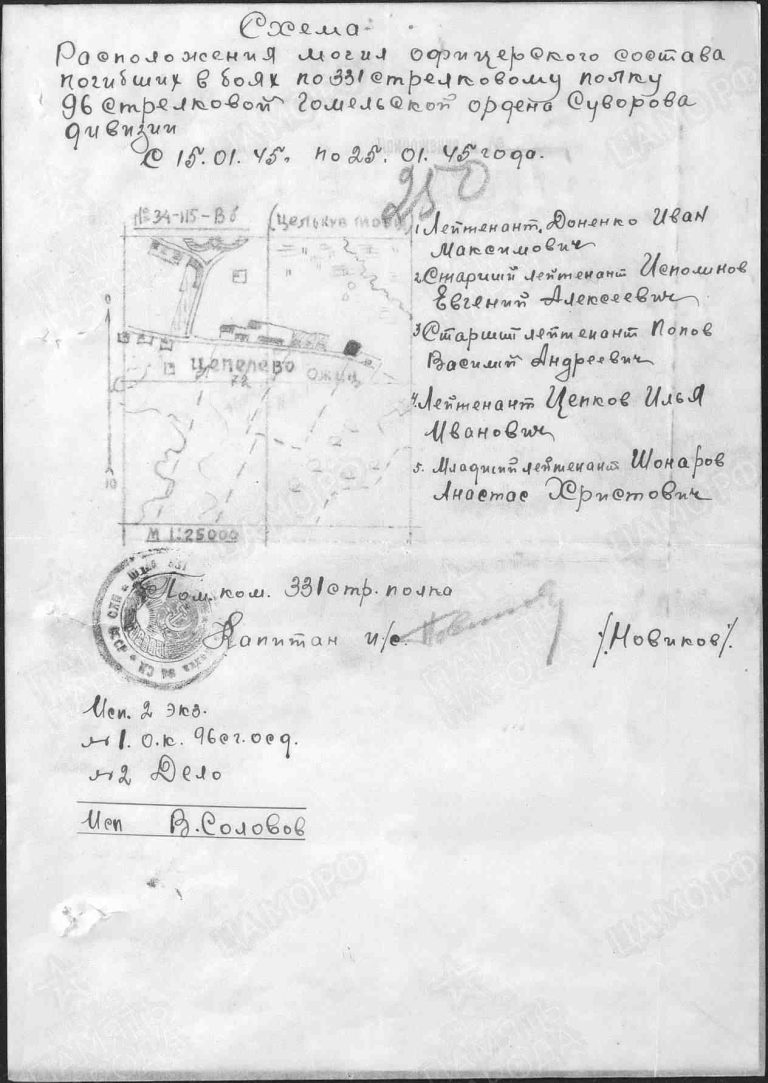 Схема
Расположения могил офицерского состава
погибших в боях по 331 стрелковому полку
96 стрелковой Гомельской ордена Суворова
дивизии
С 15.01.45. по 25.01.45 года.
250
№34-115-Вб
1 Лейтенант. Доненко Иван
Максимович
2. Старший лейтенант Исполинов
Евгений Алексеевич
3 Старший лейтенант Попов
Василий Андреевич
4. Лейтенант Цепков Илья
Иванович
5. Младший лейтенант Шонаров
Анастас Христович
Цепелево
72
ОЖИЦ
М 1:25000
Пом. ком. 331 стр. полка
Капитан и/с. /Новиков/.
Исп. 2 экз.
№1. о.к. 96 сг.осд.
№2 Дело
Исп В.Соловов
ЦАМО РФ
ПАМЯТЬ
НАРОДА